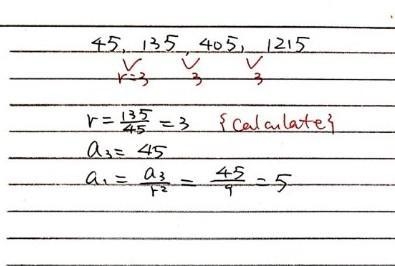 45, 135, 405, 1215
r=3 3 3
r = 135/45 = 3 {calculate}
a₃ = 45
a₁ = a₃/r² = 45/9 = 5